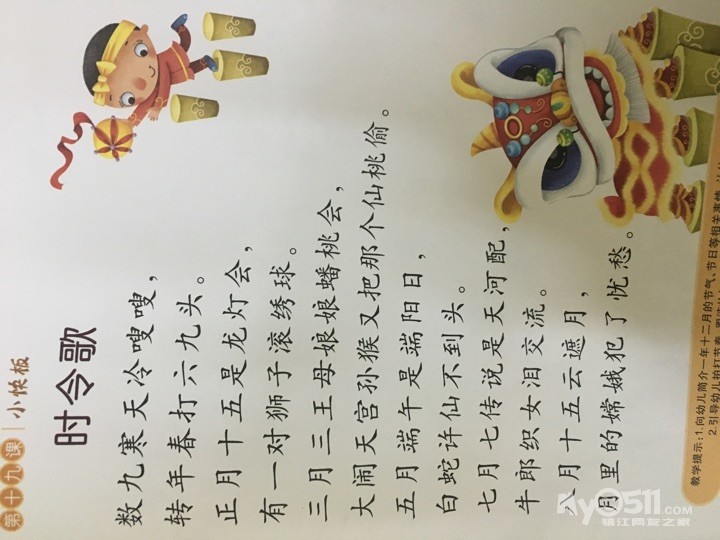 第十九课 小快板
时令歌
数九寒天冷嗖嗖，
转年春打六九头。
正月十五是龙灯会，
有一对狮子滚绣球。
三月三王母娘娘蟠桃会，
大闹天宫孙猴又把那个仙桃偷。
五月端午是端阳日，
白蛇许仙不到头。
七月七传说是天河配，
牛郎织女泪交流。
八月十五云遮月，
月里的嫦娥犯了忧愁。
教学提示：1.向幼儿简介一年十二月的节气、节日等相关事情
2.引导幼儿
my0511.com
镇江网友之家